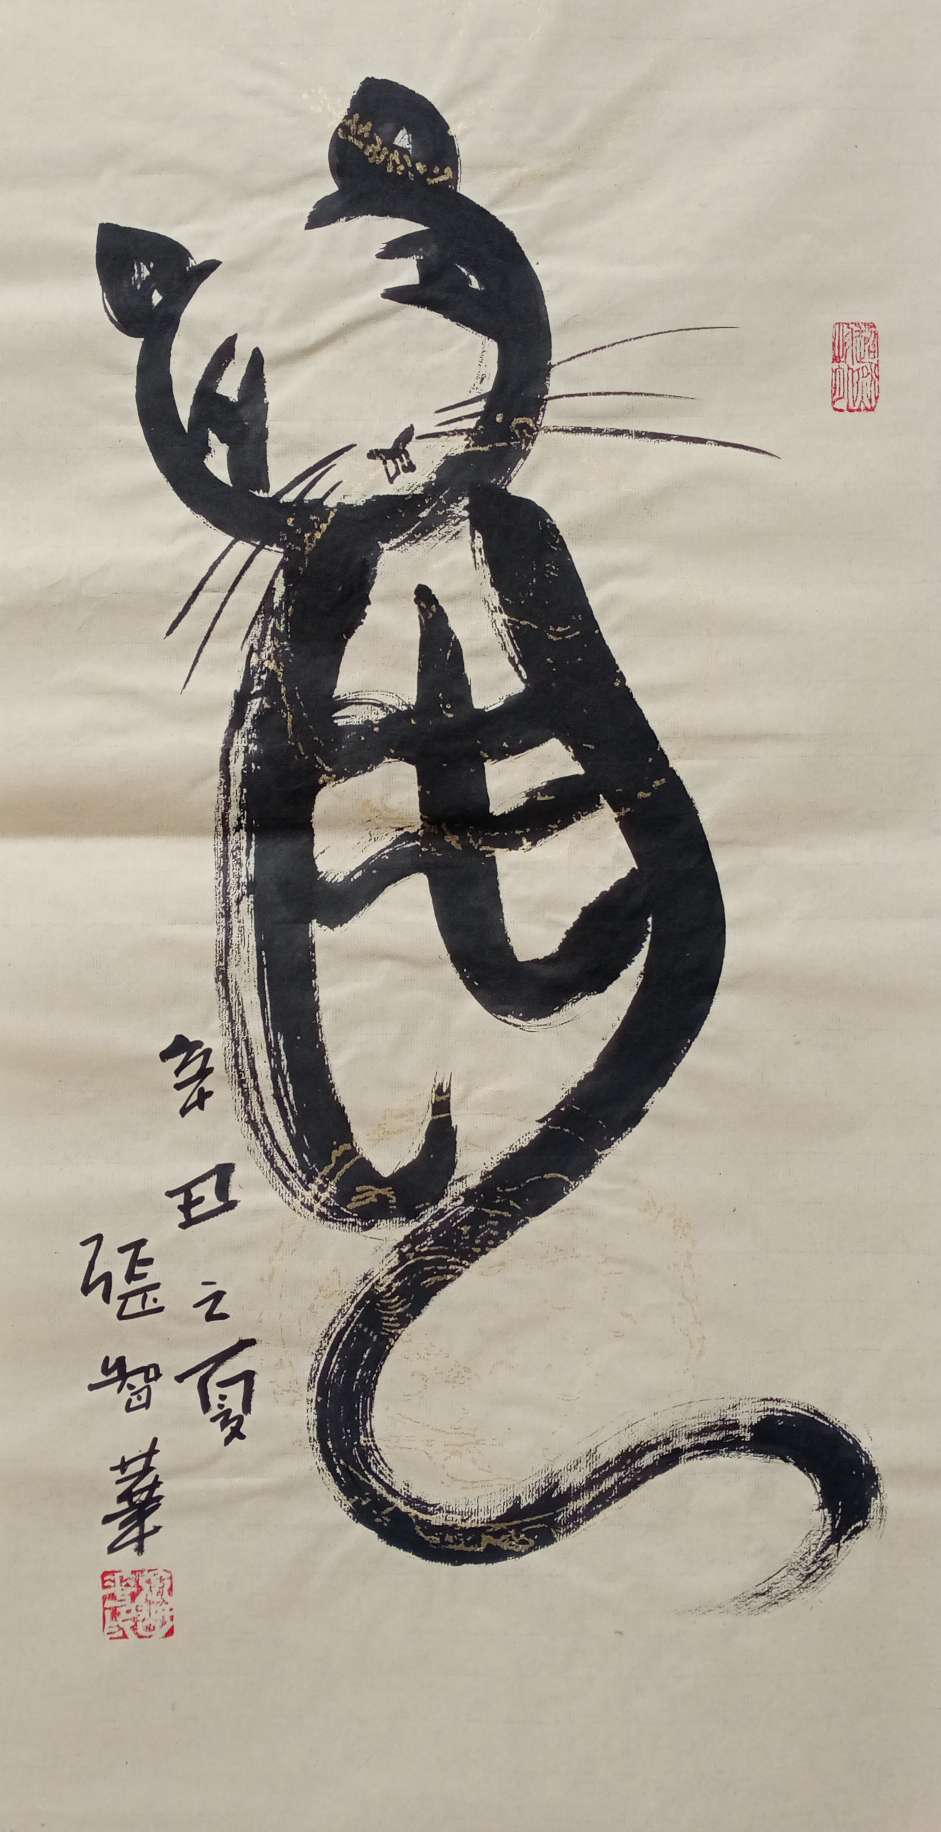 鼠
辛丑之夏
張智華